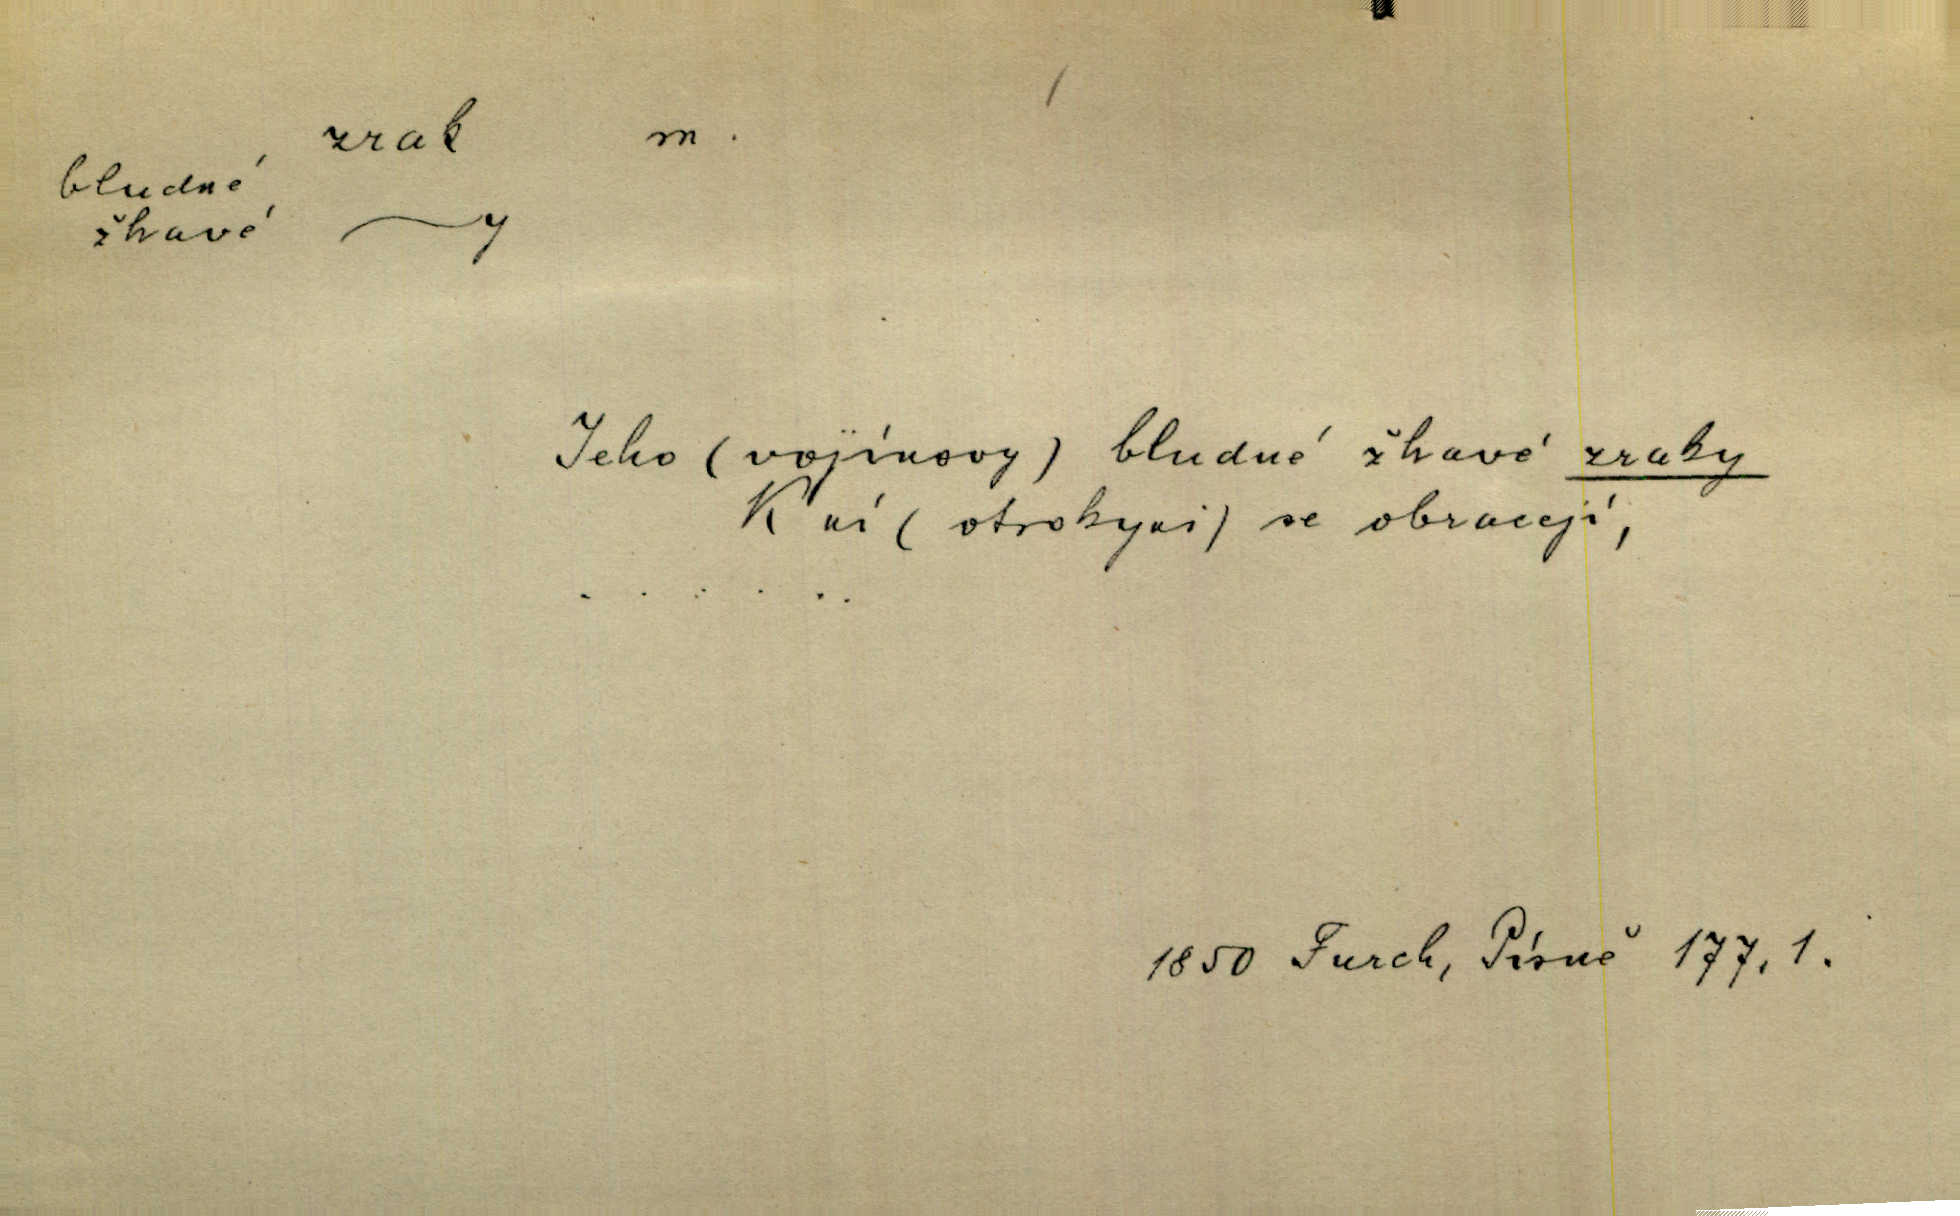 zrak m.
bludné
žhavé ~y
Jeho (vojínovy) bludné žhavé zraky
K ní (otrokyni) se obracejí,
. . . . . .
1850 Furch, Písně 177, 1.